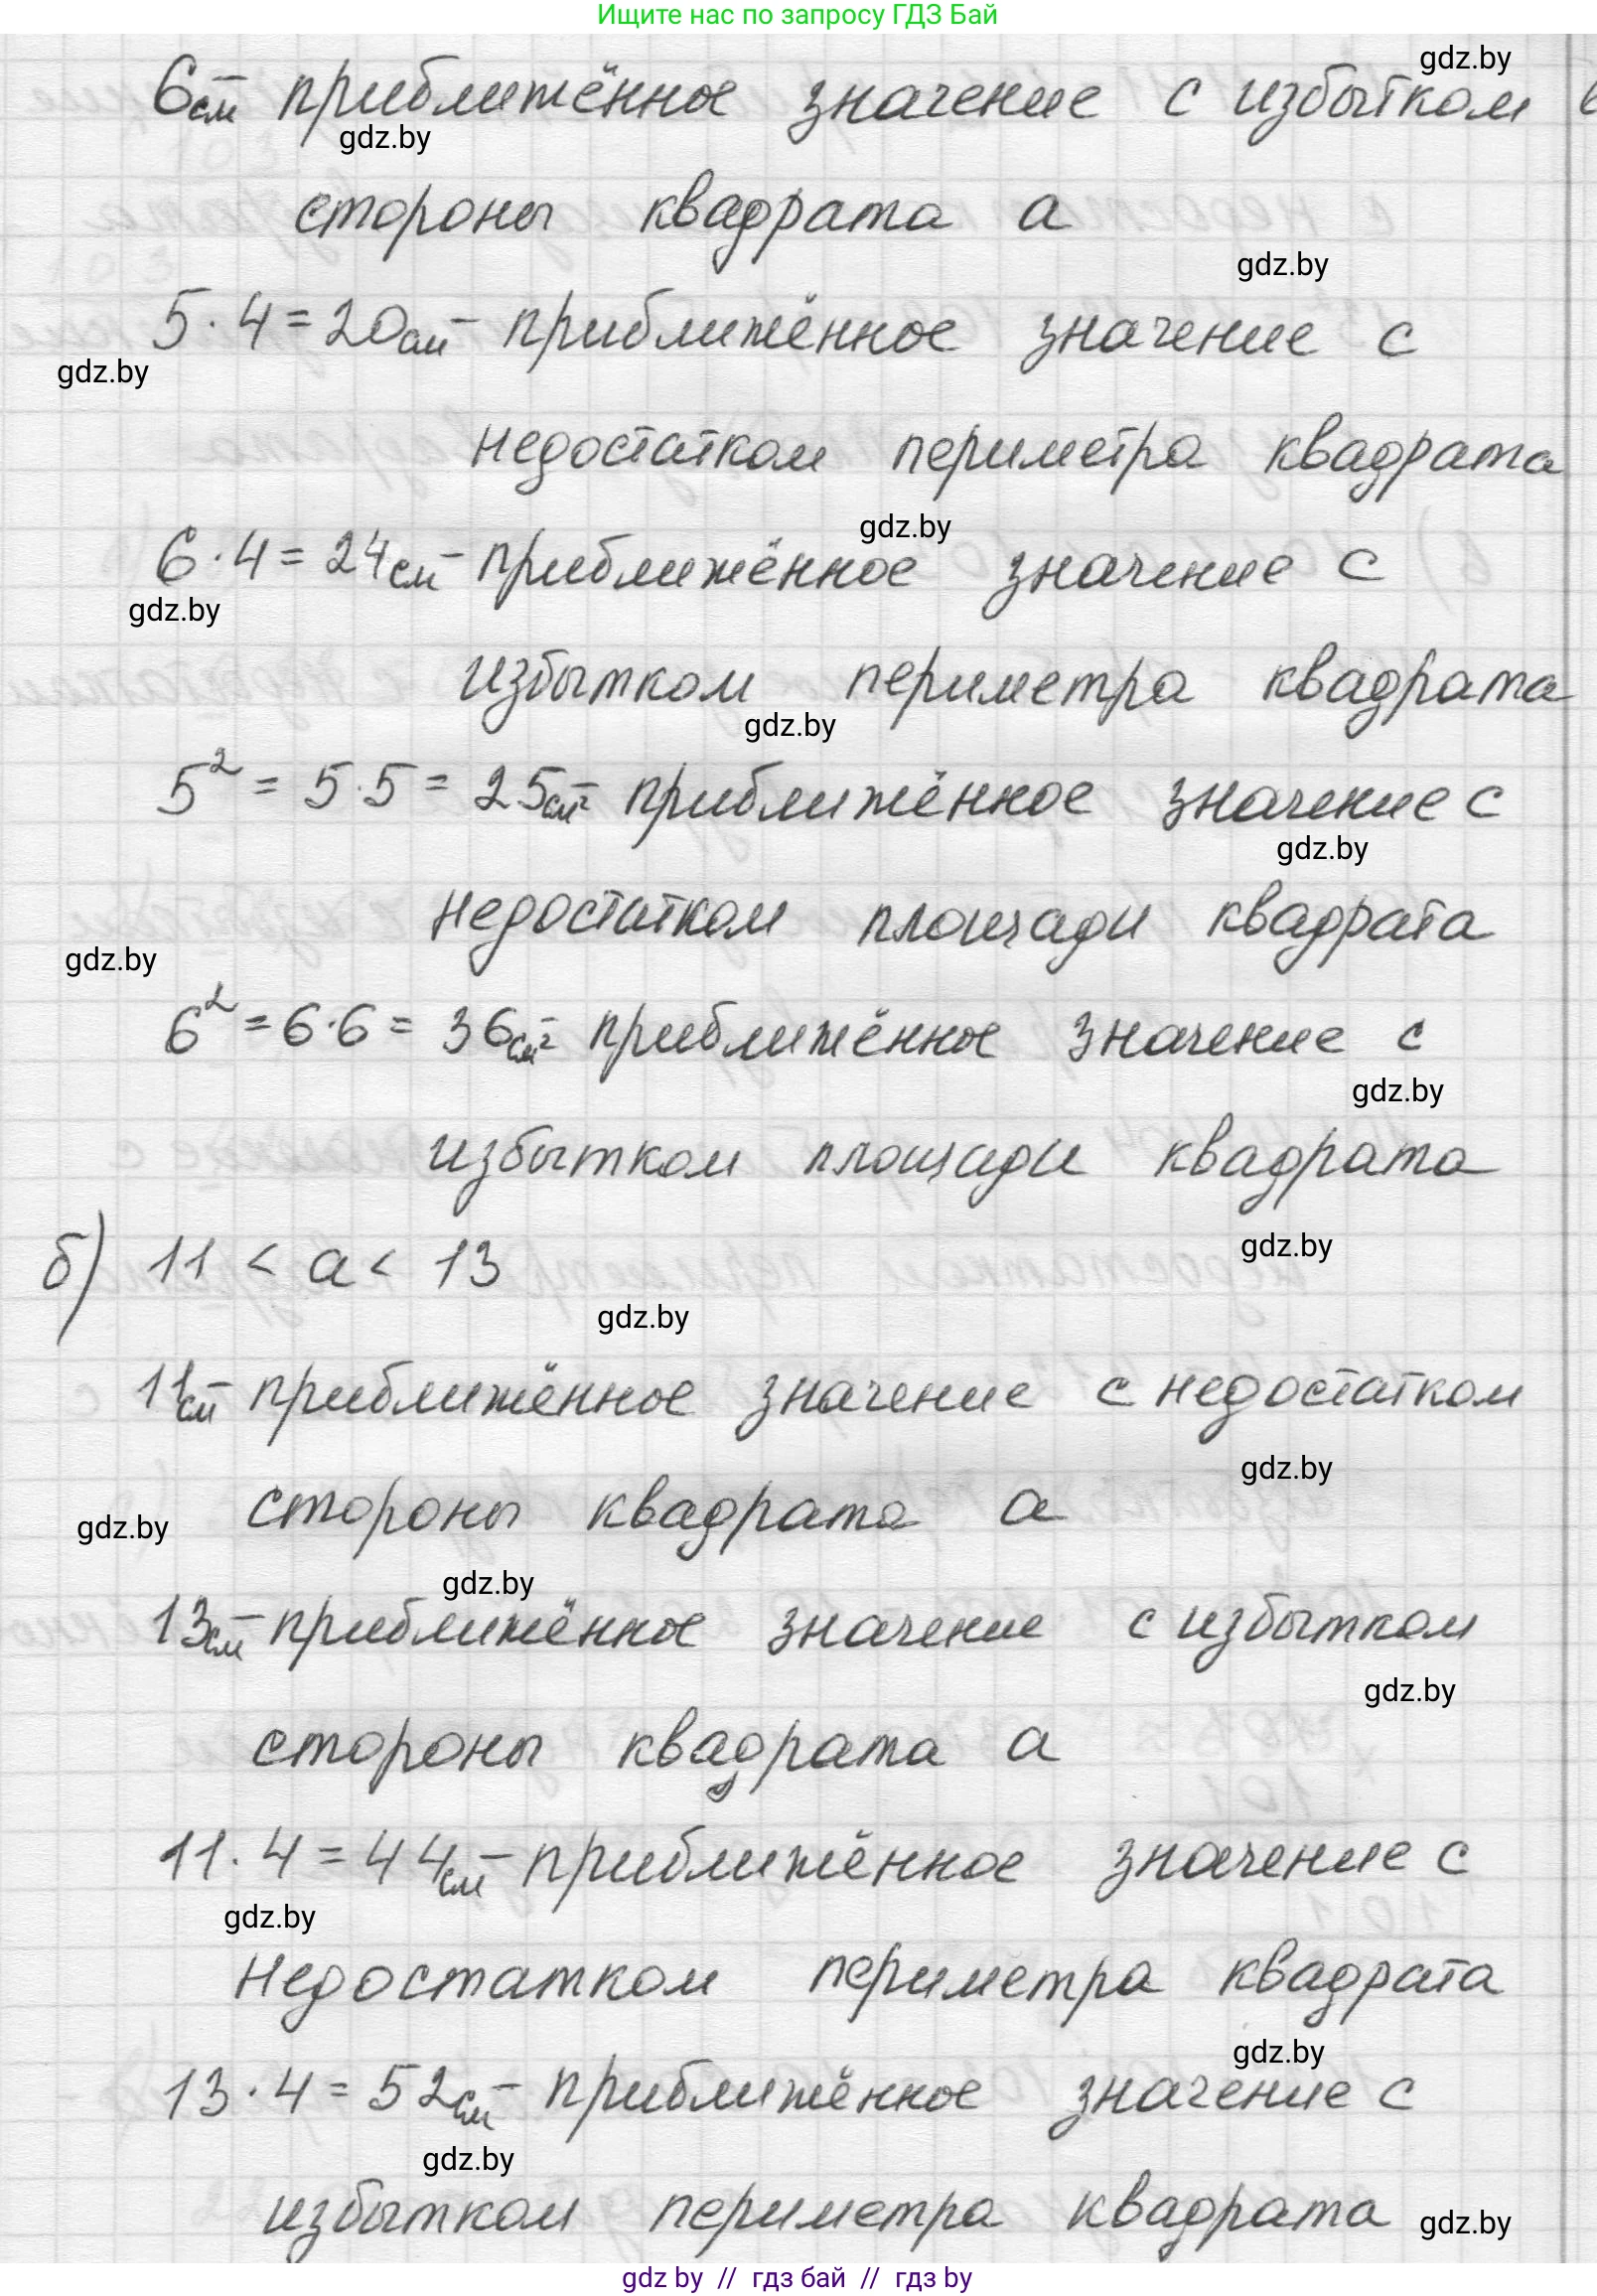 Ищите нас по запросу ГДЗ Бай
gdz.by
6см – приближённое значение с избытком
gdz.by
стороны квадрата a
gdz.by
5 · 4 = 20см – приближённое значение с
gdz.by
недостатком периметра квадрата
gdz.by
6 · 4 = 24см – приближённое значение с
gdz.by
избытком периметра квадрата
gdz.by
5² = 5 · 5 = 25см² – приближённое значение с
gdz.by
недостатком площади квадрата
gdz.by
6² = 6 · 6 = 36см² – приближённое значение с
gdz.by
избытком площади квадрата
gdz.by
б) 11 < a < 13
gdz.by
11см – приближённое значение с недостатком
gdz.by
стороны квадрата a
gdz.by
gdz.by
13см – приближённое значение с избытком
gdz.by
стороны квадрата a
11 · 4 = 44см – приближённое значение с
gdz.by
недостатком периметра квадрата
gdz.by
13 · 4 = 52см – приближённое значение с
gdz.by
избытком периметра квадрата
gdz.by
gdz by // гдз бай // гдз by